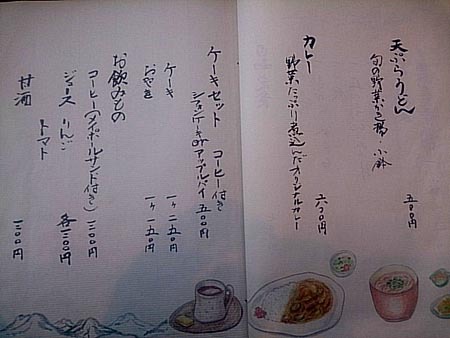 天ぷらうどん 五〇〇円
旬の野菜かき揚・小鉢
カレー 六〇〇円
野菜たっぷり煮込んだオリジナルカレー
ケーキセット コーヒー付き
シフォンケーキorアップルパイ 五〇〇円
ケーキ 一ヶ 二五〇円
おやき 一ヶ 一五〇円
お飲みもの
コーヒー(メイプルサンド付き) 三〇〇円
ジュース りんご 各二〇〇円
トマト
甘酒 二〇〇円